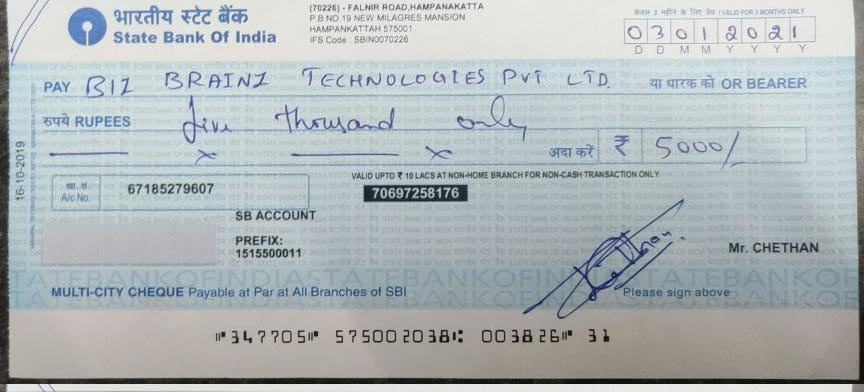 भारतीय स्टेट बैंक
State Bank Of India
(70226) - FALNIR ROAD,HAMPANAKATTA
P.B.NO.19 NEW MILAGRES MANSION
HAMPANKATTAH 575001
IFS Code : SBIN0070226
केवल 3 महीने के लिए वैध / VALID FOR 3 MONTHS ONLY
0 3 0 1 2 0 2 1
D D M M Y Y Y Y
PAY BIZ BRAINZ TECHNOLOGIES PVT LTD. या धारक को OR BEARER
रुपये RUPEES five thousand only
अदा करें ₹ 5000/
16-10-2019
खा. सं. A/c No. 67185279607
VALID UPTO ₹ 10 LACS AT NON-HOME BRANCH FOR NON-CASH TRANSACTION ONLY
70697258176
SB ACCOUNT
PREFIX:
1515500011
Mr. CHETHAN
MULTI-CITY CHEQUE Payable at Par at All Branches of SBI
Please sign above
⑈347705⑈ 575002038⑆ 003826⑈ 31